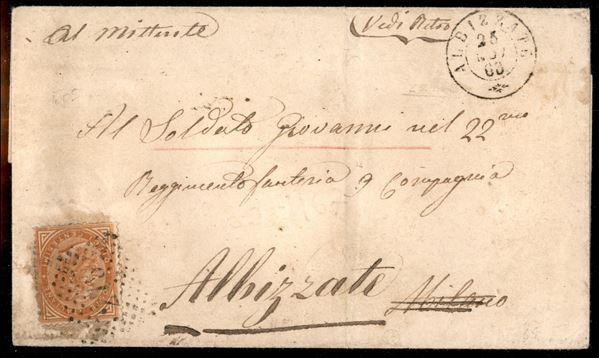 Al Mittente
Vedi Retro
ALBIZZATE
25
NOV
66
Al Soldato Giovanni nel 22mo
Reggimento fanteria 9 Compagnia
Albizzate Milano